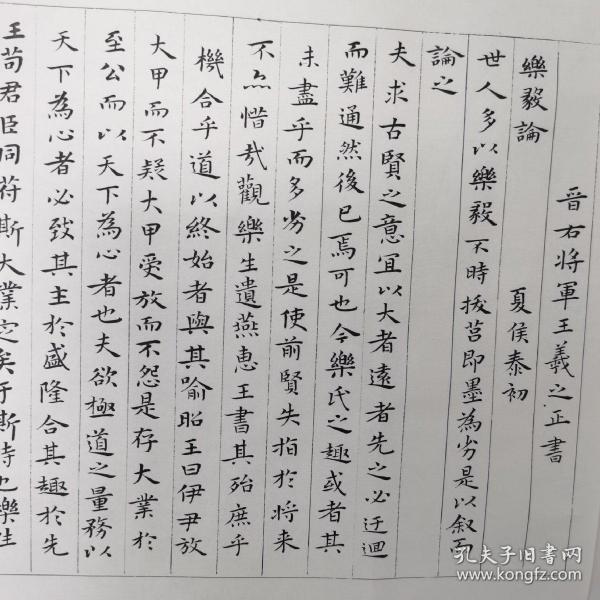 晉右將軍王羲之正書
樂毅論
夏侯泰初
世人多以樂毅不時拔莒即墨為劣是以叙而
論之
夫求古賢之意宜以大者遠者先之必迂迴
而難通然後已焉可也今樂氏之趣或者其
未盡乎而多劣之是使前賢失指於将来
不亦惜哉觀樂生遺燕惠王書其殆庶乎
機合乎道以終始者與其喻昭王曰伊尹放
大甲而不疑大甲受放而不怨是存大業於
至公而以天下為心者也夫欲極道之量務以
天下為心者必致其主於盛隆合其趣於先
王苟君臣同符斯大業定矣于斯時也樂生
孔夫子旧书网
www.kongfz.com